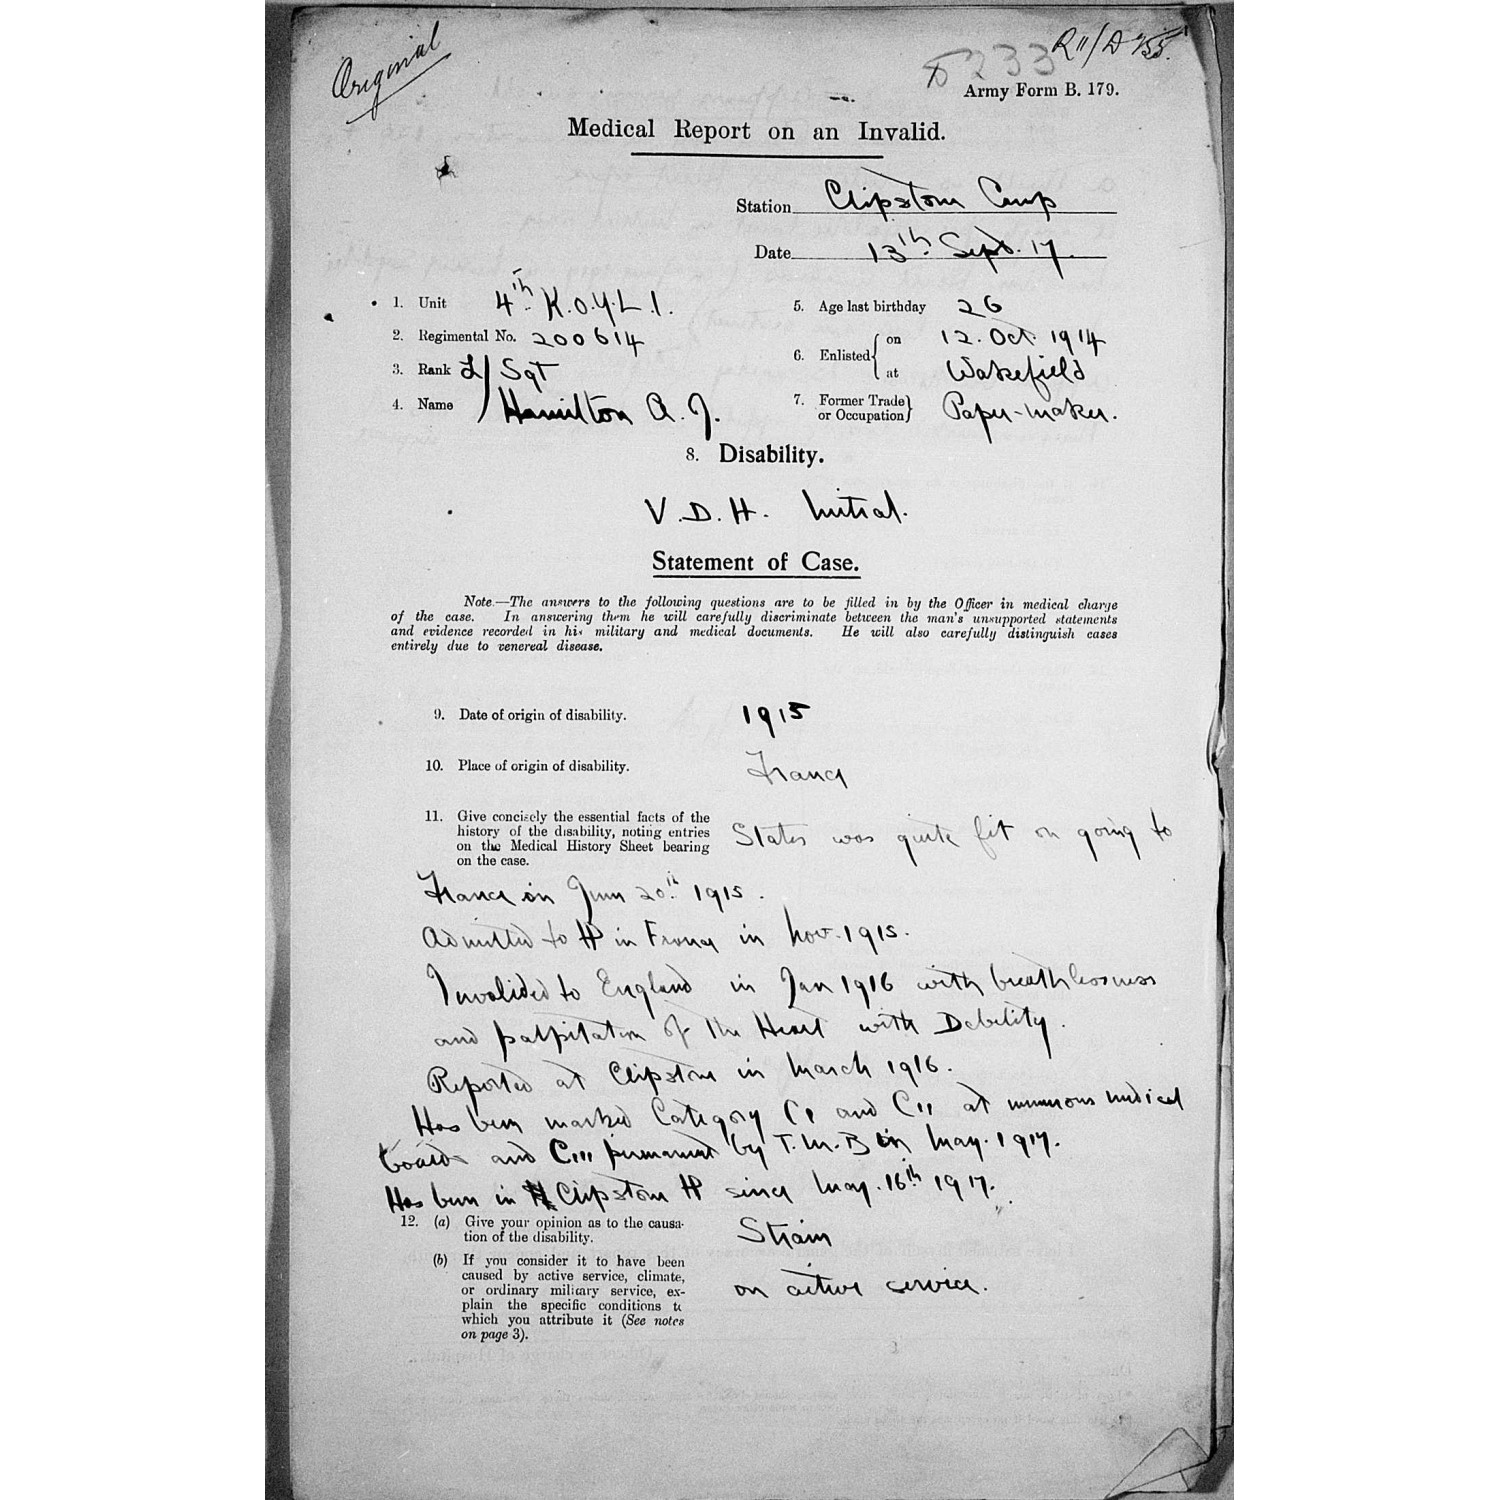 Original
5233 R11/D 455.
Army Form B. 179.
Medical Report on an Invalid.
Station Clipstone Camp
Date 13th Sept. 17.
1. Unit 4th K.O.Y.L.I.
2. Regimental No. 200614
3. Rank L/Sgt
4. Name Hamilton A. J.
5. Age last birthday 26
6. Enlisted { on 12. Oct. 1914
at Wakefield
7. Former Trade or Occupation } Paper-maker.
8. Disability.
V.D.H. Mitral.
Statement of Case.
Note.—The answers to the following questions are to be filled in by the Officer in medical charge
of the case. In answering them he will carefully discriminate between the man's unsupported statements
and evidence recorded in his military and medical documents. He will also carefully distinguish cases
entirely due to venereal disease.
9. Date of origin of disability. 1915
10. Place of origin of disability. France
11. Give concisely the essential facts of the
history of the disability, noting entries
on the Medical History Sheet bearing
on the case.
States was quite fit on going to
France in June 20th 1915.
Admitted to H in France in Nov. 1915.
Invalided to England in Jan 1916 with breathlessness
and palpitation of the Heart with Debility.
Reported at Clipstone in March 1916.
Has been marked Category C1 and C11 at numerous medical
boards and C111 permanent by T.M.B in May. 1917.
Has been in Clipstone H since May. 16th 1917.
12. (a) Give your opinion as to the causa-
tion of the disability.
Strain
(b) If you consider it to have been
caused by active service, climate,
or ordinary military service, ex-
plain the specific conditions to
which you attribute it (See notes
on page 3).
on active service.